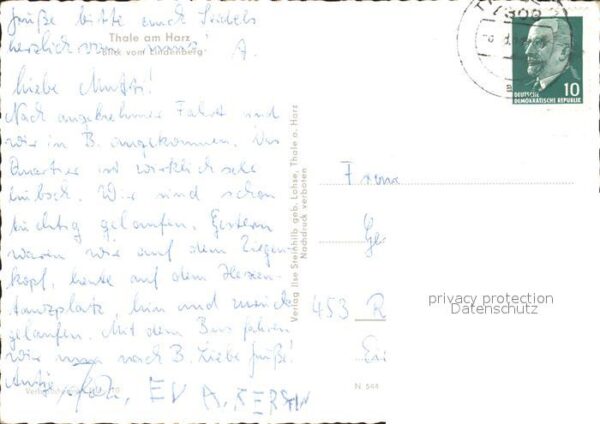 Grüße bitte auch Seidels
herzlich von uns! A.
Thale am Harz
Blick vom Lindenberg
Liebe Mutti!
Nach angenehmer Fahrt sind
wir in B. angekommen. Das
Quartier ist wirklich sehr
hübsch. Wir sind schon
tüchtig gelaufen. Gestern
waren wir auf dem Ziegen-
kopf, heute auf dem Hexen-
tanzplatz, hin und zurück
gelaufen. Mit dem Bus fahren
wir nach B. Liebe Grüße!
Antje, EVA, KERSTIN
Verlag Ilse Steinhilb geb. Lohse, Thale a. Harz
Nachdruck verboten
N 544
10
DEUTSCHE
DEMOKRATISCHE REPUBLIK
Frau
Ger
453 R
privacy protection
Datenschutz